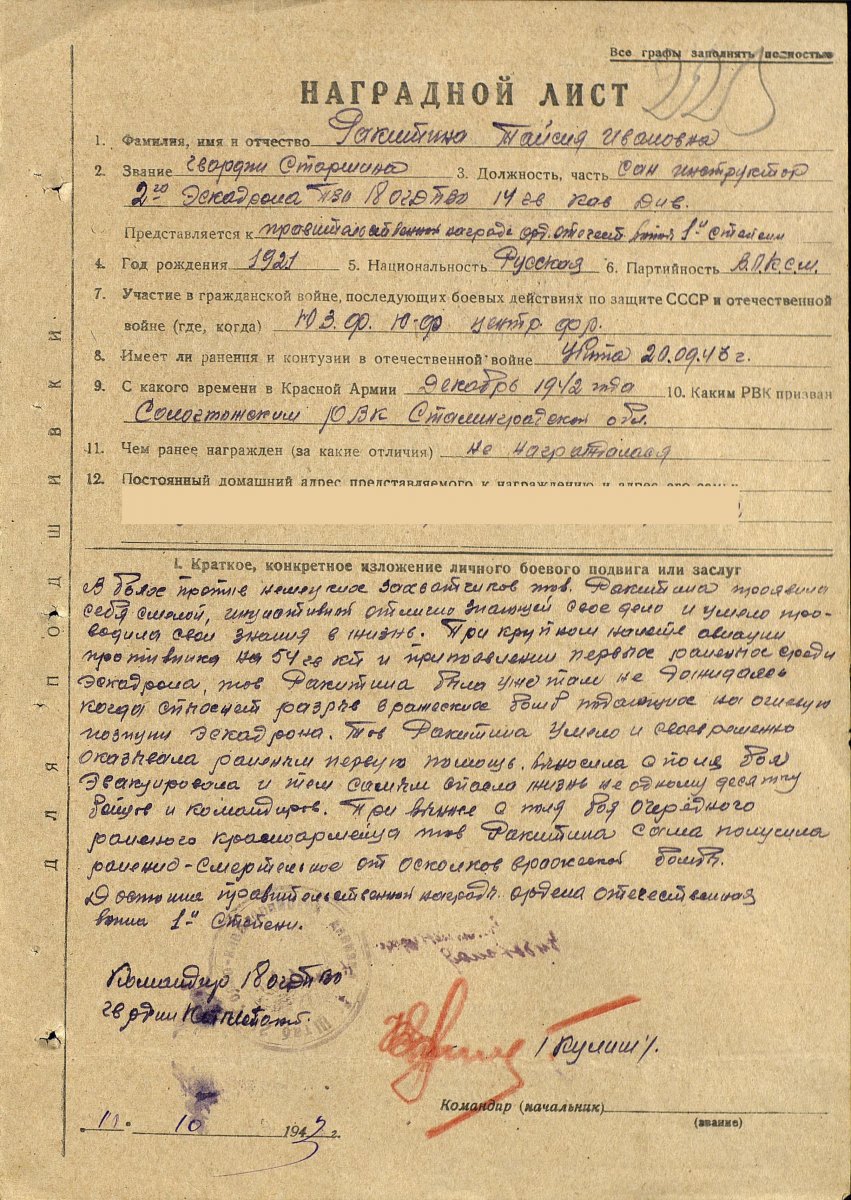 Все графы заполнять полностью
НАГРАДНОЙ ЛИСТ
1. Фамилия, имя и отчество Ракитина Таисия Ивановна
2. Звание Гвардии Старшина 3. Должность, часть Сан инструктор
2го Эскадрона ПВО 18 ОГДПВО 14 гв Кав Див.
Представляется к правительственной награде орд. отечест войны 1й степени
4. Год рождения 1921 5. Национальность Русская 6. Партийность В.Л.К.С.М.
7. Участие в гражданской войне, последующих боевых действиях по защите СССР и отечественной
войне (где, когда) Ю З. Ф. Ю-Ф центр. фр.
8. Имеет ли ранения и контузии в отечественной войне Убита 20.09.43 г.
9. С какого времени в Красной Армии Декабрь 1942 года 10. Каким РВК призван
РВК Сталинградской обл.
11. Чем ранее награжден (за какие отличия) не награждалася
12. Постоянный домашний адрес представляемого к награждению и адрес его семьи
I. Краткое, конкретное изложение личного боевого подвига или заслуг
В боях против немецких захватчиков тов. Ракитина проявила
себя смелой, инициативной отлично знающей свое дело и умело про-
водила свои знания в жизнь. При крупном налете авиации
противника на 54 гв кп и появлении первых раненых среди
Эскадрона, тов Ракитина была уже там не дожидаясь
когда стихнет разрыв вражеских бомб падающих на огневую
позицию Эскадрона. Тов Ракитина Умело и своевременно
оказывала раненым первую помощь. выносила с поля боя
Эвакуировала и тем самым спасла жизнь не одному десятку
бойцов и командиров. При выносе с поля боя очередного
раненого красноармейца тов Ракитина сама получила
ранение-смертельное от осколков вражеской бомбы.
Достойна правительственной награды ордена отечественная
война 1й Степени.
Командир 18 ОГДПВО
гвардии Капитан
/Кулиш/.
Командир (начальник)
(звание)
11. 10 1943 г.
ДЛЯ ПОДШИВКИ